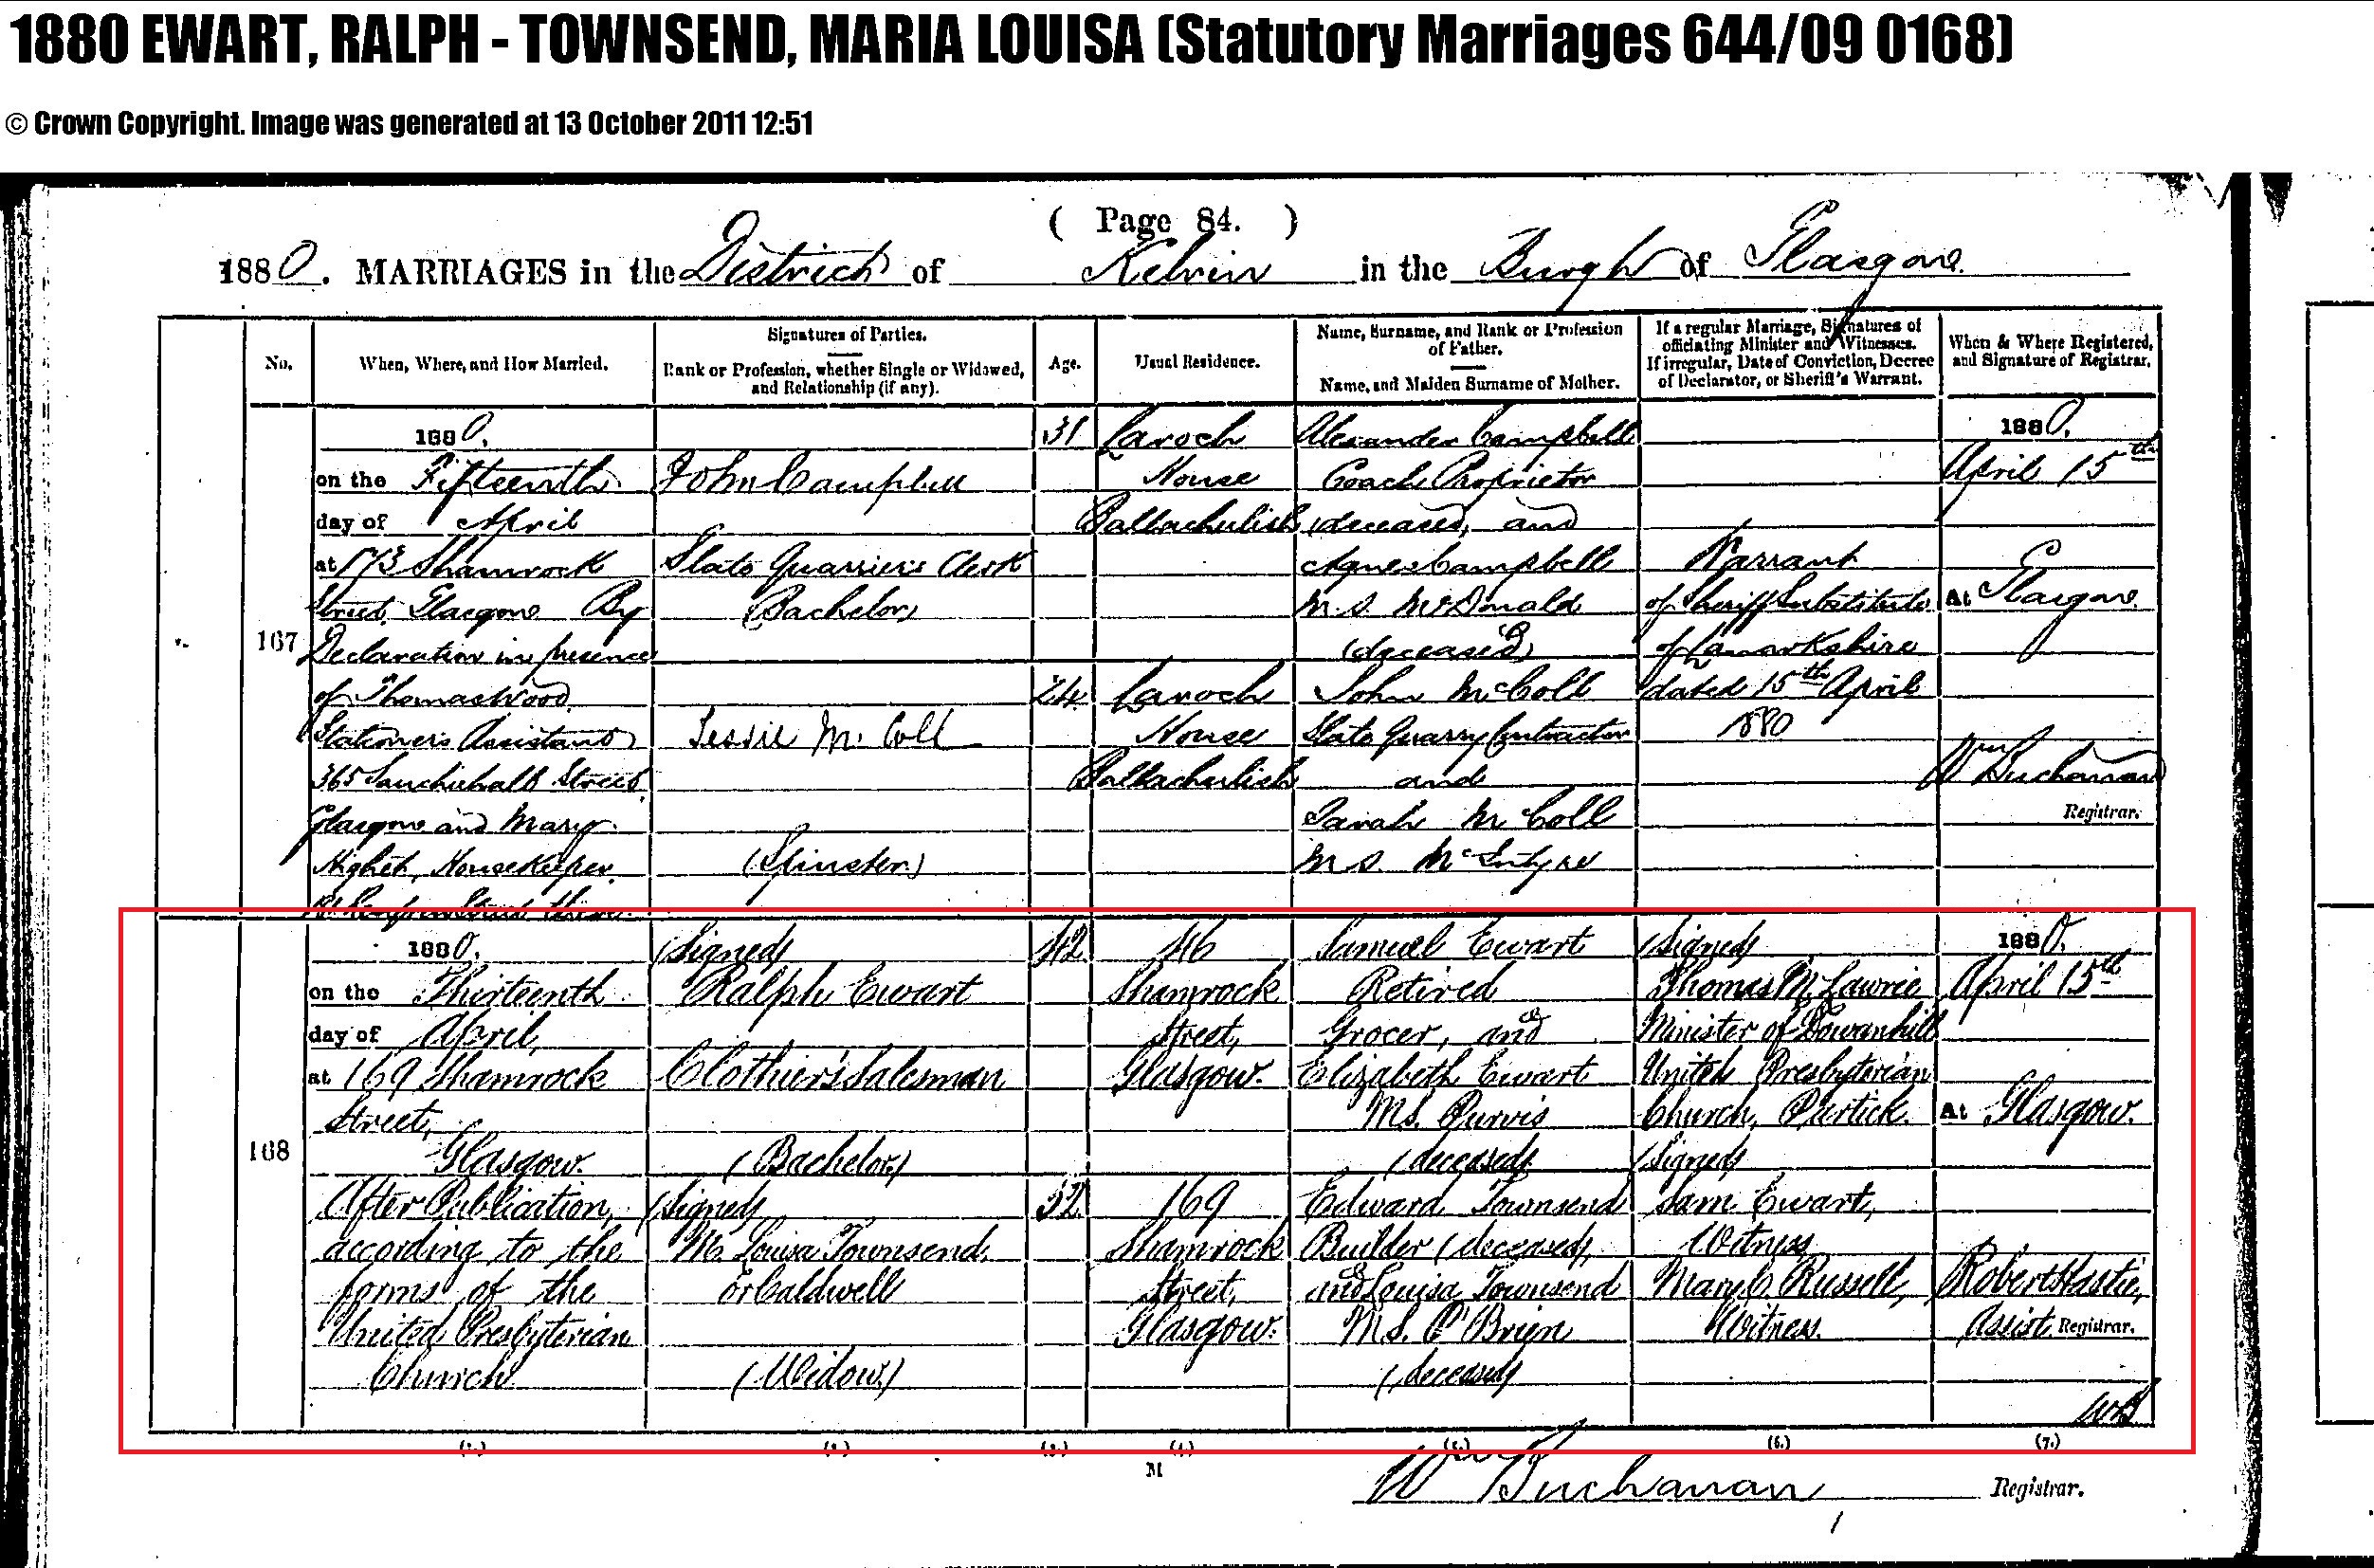 1880 EWART, RALPH - TOWNSEND, MARIA LOUISA (Statutory Marriages 644/09 0168)
© Crown Copyright. Image was generated at 13 October 2011 12:51
( Page 84. )
1880. MARRIAGES in the District of Kelvin in the Burgh of Glasgow
No.
When, Where, and How Married.
Signatures of Parties.
Rank or Profession, whether Single or Widowed,
and Relationship (if any).
Age.
Usual Residence.
Name, Surname, and Rank or Profession
of Father.
Name, and Maiden Surname of Mother.
If a regular Marriage, Signatures of
officiating Minister and Witnesses.
If irregular, Date of Conviction, Decree
of Declarator, or Sheriff's Warrant.
When & Where Registered,
and Signature of Registrar.
167
1880.
on the Fifteenth
day of April
at 173 Shamrock
Street Glasgow By
Declaration in presence
of Thomas Wood
Stationer's Assistant
365 Sauchiehall Street
Glasgow and Mary
Housekeeper
John Campbell
Slate Quarrier's Clerk
(Bachelor)
Jessie McColl
(Spinster)
31
24
Laroch
House
Ballachulish
Laroch
House
Ballachulish
Alexander Campbell
Coach Proprietor
(deceased) and
Agnes Campbell
M.S. McDonald
(deceased)
John McColl
Slate Quarry Contractor
and
Sarah McColl
M.S. McIntyre
Warrant
of Sheriff Substitute
of Lanarkshire
dated 15th April
1880
1880.
April 15th
At Glasgow
Wm Buchanan
Registrar.
168
1880.
on the Thirteenth
day of April,
at 169 Shamrock
Street,
Glasgow.
After Publication,
according to the
forms of the
United Presbyterian
Church
(Signed)
Ralph Ewart
Clothier's Salesman
(Bachelor)
(Signed)
M. Louisa Townsend,
or Caldwell
(Widow)
42
32
46
Shamrock
Street,
Glasgow.
169
Shamrock
Street,
Glasgow.
Samuel Ewart
Retired
Grocer, and
Elizabeth Ewart
M.S. Purvis
(deceased)
Edward Townsend
Builder (deceased),
and Louisa Townsend
M.S. O'Brien
(deceased)
(Signed)
Thomas M. Lawrie
Minister of Dowanhill
United Presbyterian
Church, Partick.
(Signed)
Sam. Ewart,
Witness
Mary C. Russell,
Witness.
1880.
April 15th
At Glasgow.
Robert Hastie,
Assist. Registrar.
WB
(1.) (2.) (3.) (4.) (5.) (6.) (7.)
M
Wm Buchanan Registrar.